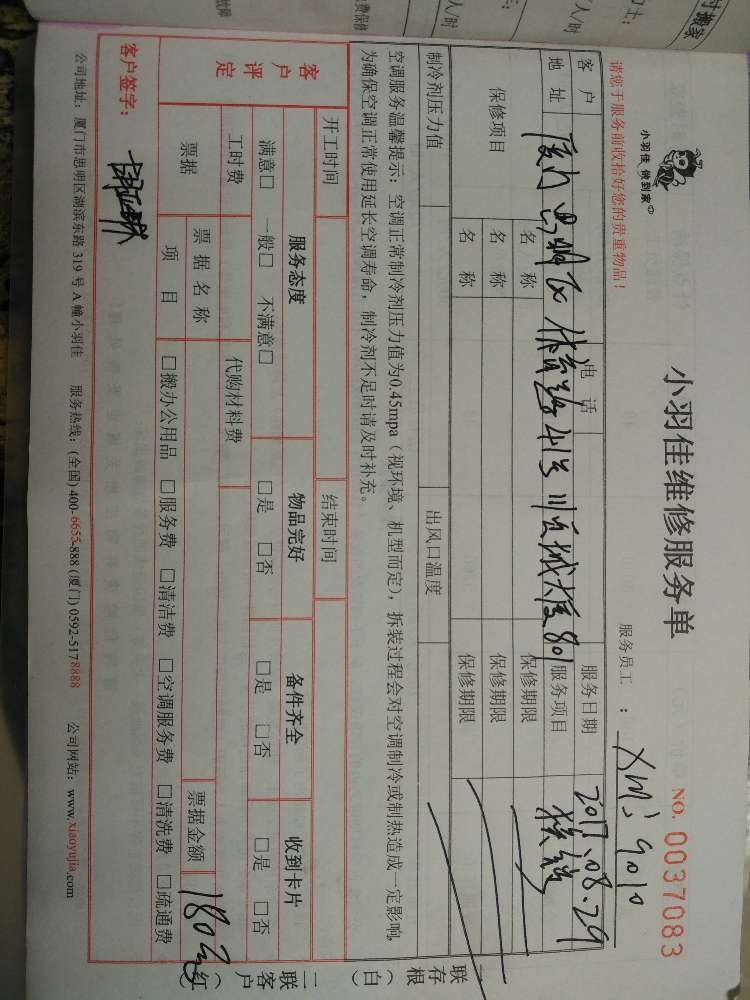 小羽佳 做到家
小羽佳维修服务单
NO. 0037083
请您于服务前收拾好您的贵重物品！
服务员工 ：
客 户 电 话 服务日期 2017.08.29
地 址 厦门思明区体育路41号 801 服务项目
保修项目 名 称 保修期限
名 称 保修期限
名 称 保修期限
制冷剂压力值 出风口温度
空调服务温馨提示：空调正常制冷剂压力值为0.45mpa（视环境、机型而定），拆装过程会对空调制冷或制热造成一定影响，
为确保空调正常使用延长空调寿命，制冷剂不足时请及时补充。
开工时间 结束时间
客 户 评 定 服务态度 物品完好 备件齐全 收到卡片
满意□ 一般□ 不满意□ □是 □否 □是 □否 □是 □否
工时费 代购材料费
票据 票 据 名 称 票据金额 180元
项 目 □搬办公用品 □服务费 □清洁费 □空调服务费 □清洗费 □疏通费
客户签字：
公司地址：厦门市思明区湖滨东路 319 号 A 幢小羽佳 服务热线：(全国) 400-6655-888 (厦门) 0592-5178888 公司网站：www.xiaoyujia.com
存根联（白）
二联客户（红）